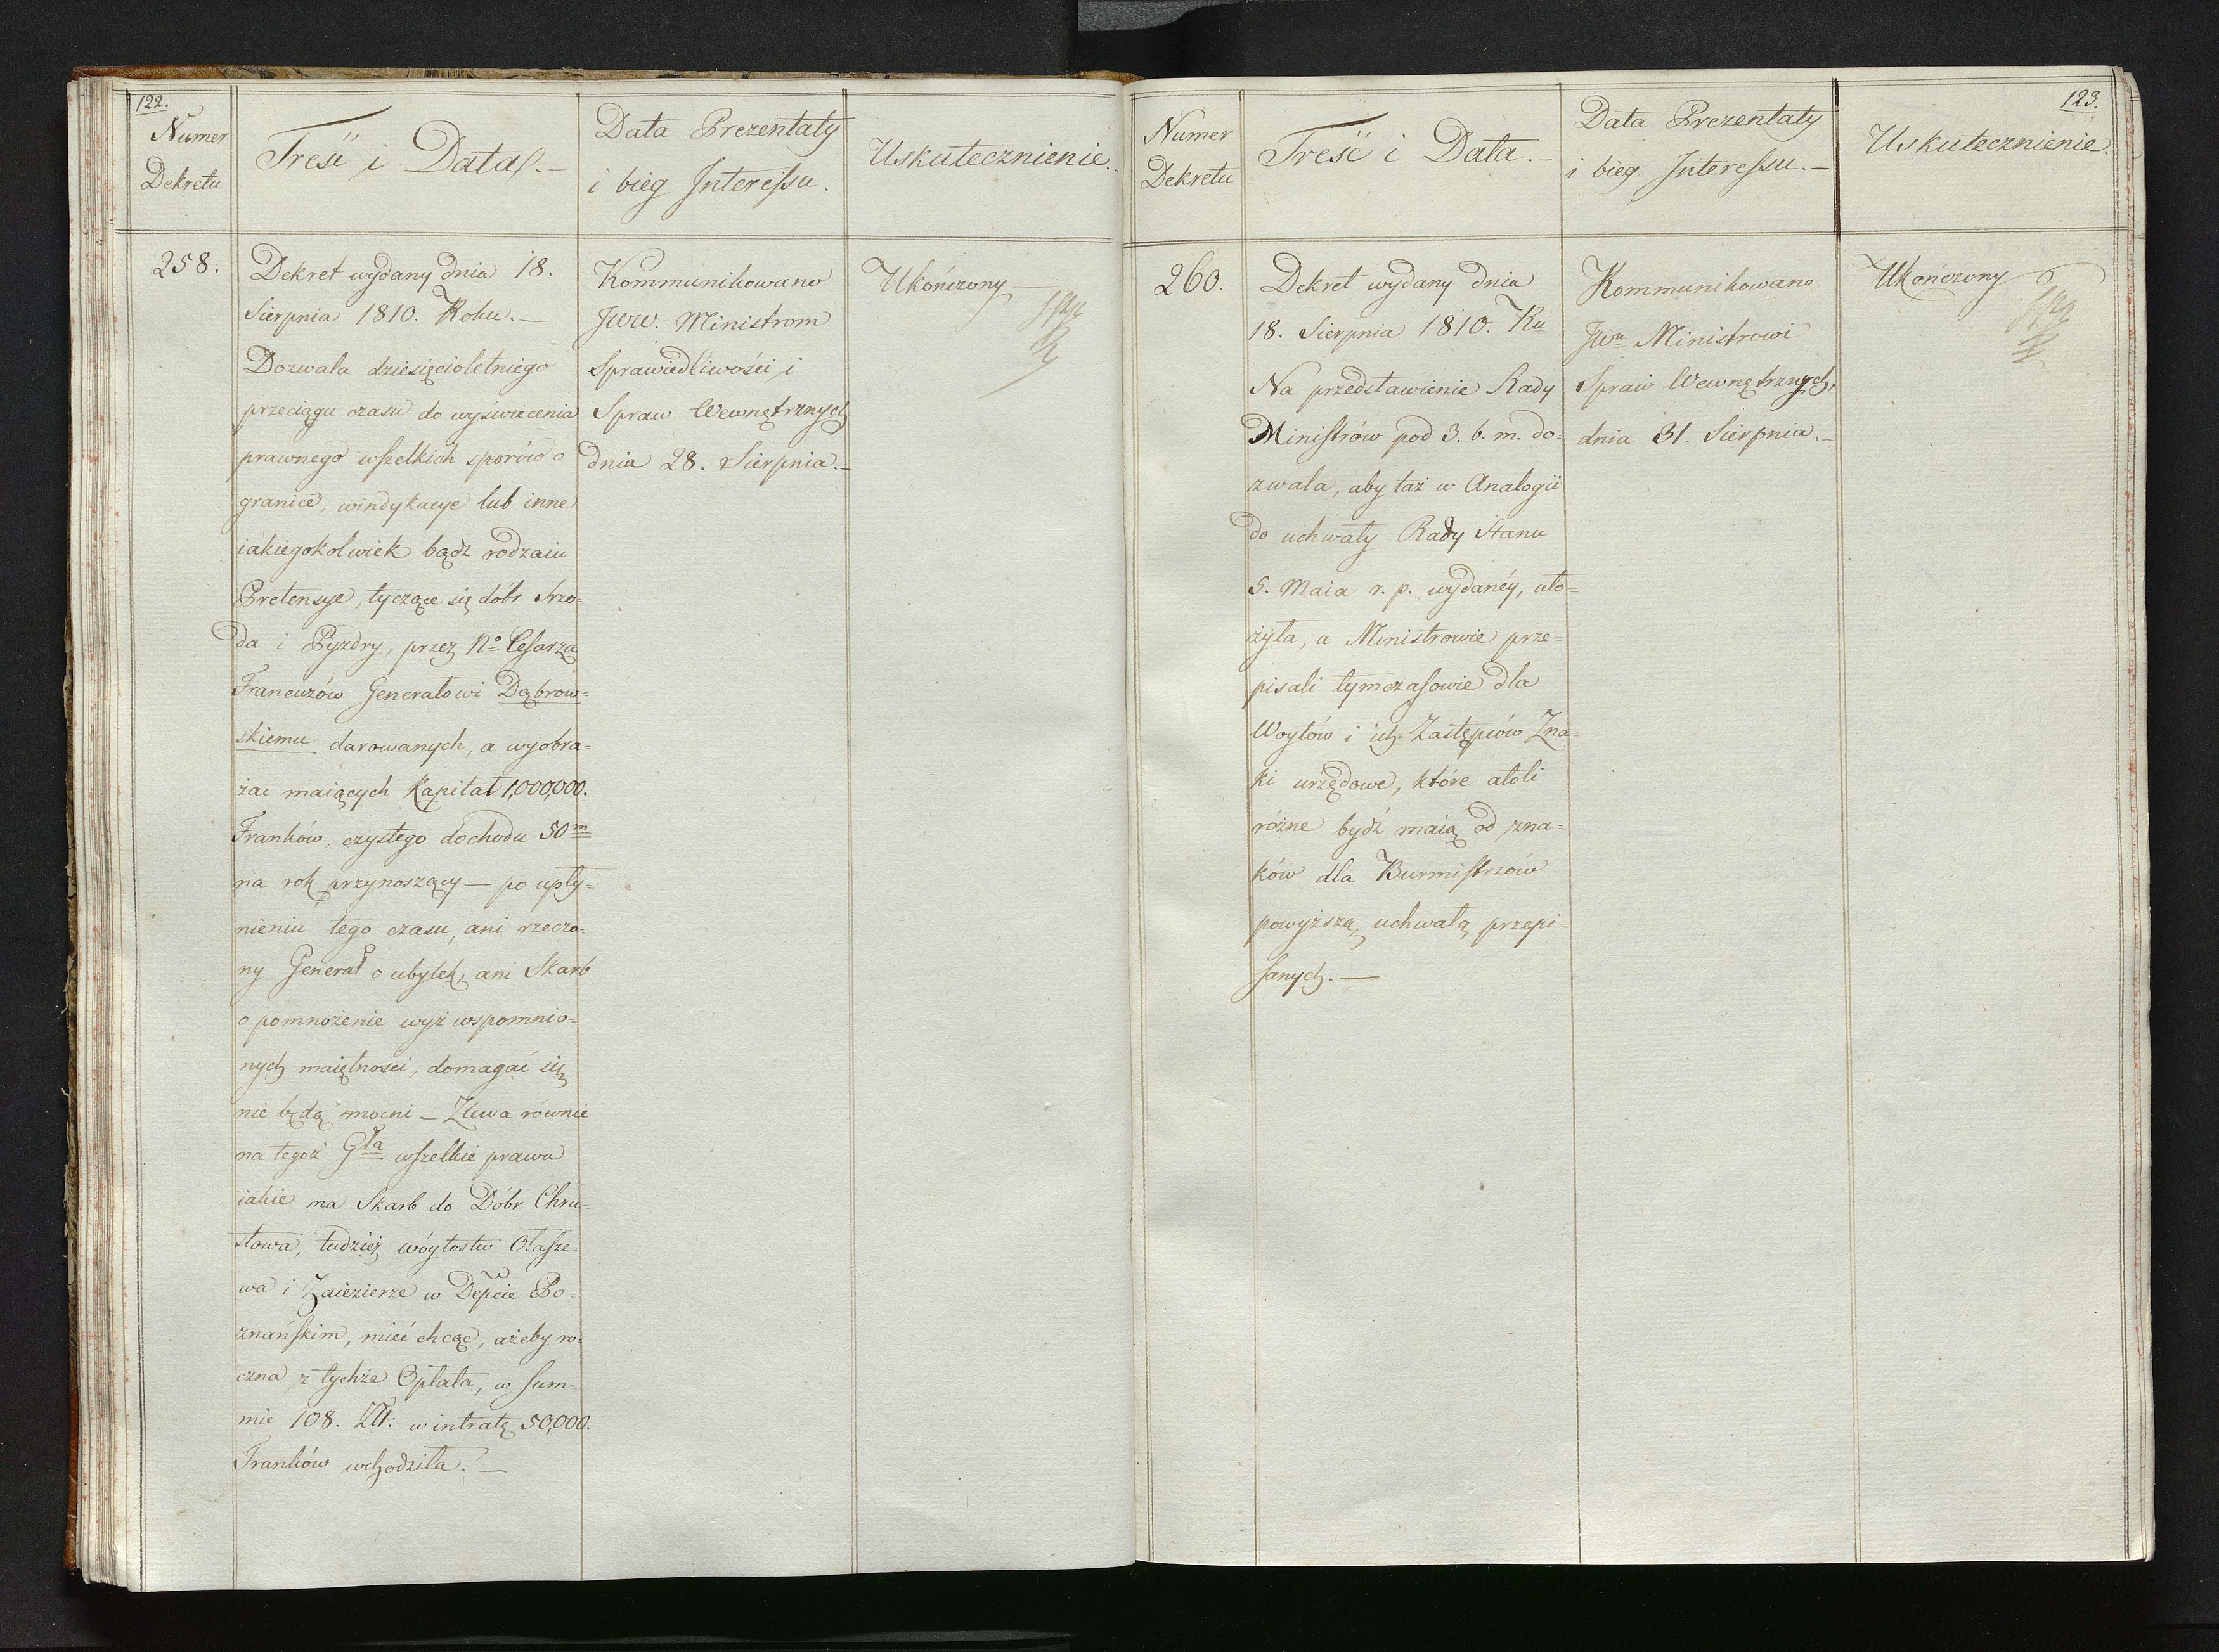 122.
Numer
Dekretu
Treść i Data.—
Data Prezentaty
i bieg Interessu.
Uskutecznienie.
258.
Dekret wydany dnia 18.
Sierpnia 1810. Roku.—
Dozwala dziesięcioletniego
przeciągu czasu do wyświecenia
prawnego wszelkich sporów o
granice, windykacye lub inne
iakiegokolwiek bądź rodzaiu
Pretensye, tyczące się dóbr Szro-
da i Pyzdry, przez No Cesarza
Francuzów Generałowi Dąbrow=
skiemu darowanych, a wyobra=
żać maiących Kapitał 1,000,000.
Franków, czystego dochodu 50m
na rok przynoszący — po upły=
nieniu tego czasu, ani rzeczo-
ny Generał o ubytek, ani Skarb
o pomnożenie wyż wspomnio=
nych maiętności, domagać się
nie będą mocni — Zlewa równie
na tegoż Gła wszelkie prawa
iakie ma Skarb do Dóbr Chru=
stowa, tudzież wóytostw Olasze=
wa i Zaiezierze w Depcie Po=
znańskim, mieć chcąc, ażeby ro-
czna z tychże Opłata, w sum=
mie 108. Zł: w intratę 50,000.
Franków wchodziła.—
Kommunikowano
Jww. Ministrom
Sprawiedliwości i
Spraw Wewnętrznych
dnia 28. Sierpnia.—
Ukończony—
123.
Numer
Dekretu
Treść i Data.—
Data Prezentaty
i bieg Interessu.—
Uskutecznienie.
260.
Dekret wydany dnia
18. Sierpnia 1810. Ru
Na przedstawienie Rady
Ministrów pod 3. b. m. do=
zwala, aby taż w Analogii
do uchwały Rady Stanu
5. Maia r. p. wydanéy, uło=
żyła, a Ministrowie prze=
pisali tymczasowie dla
Woytów i ich Zastępców Zna=
ki urzędowe, które atoli
różne bydź maią od zna=
ków dla Burmistrzów
powyższą uchwałą przepi=
sanych.—
Kommunikowano
Jwu Ministrowi
Spraw Wewnętrznych,
dnia 31. Sierpnia.—
Ukończony